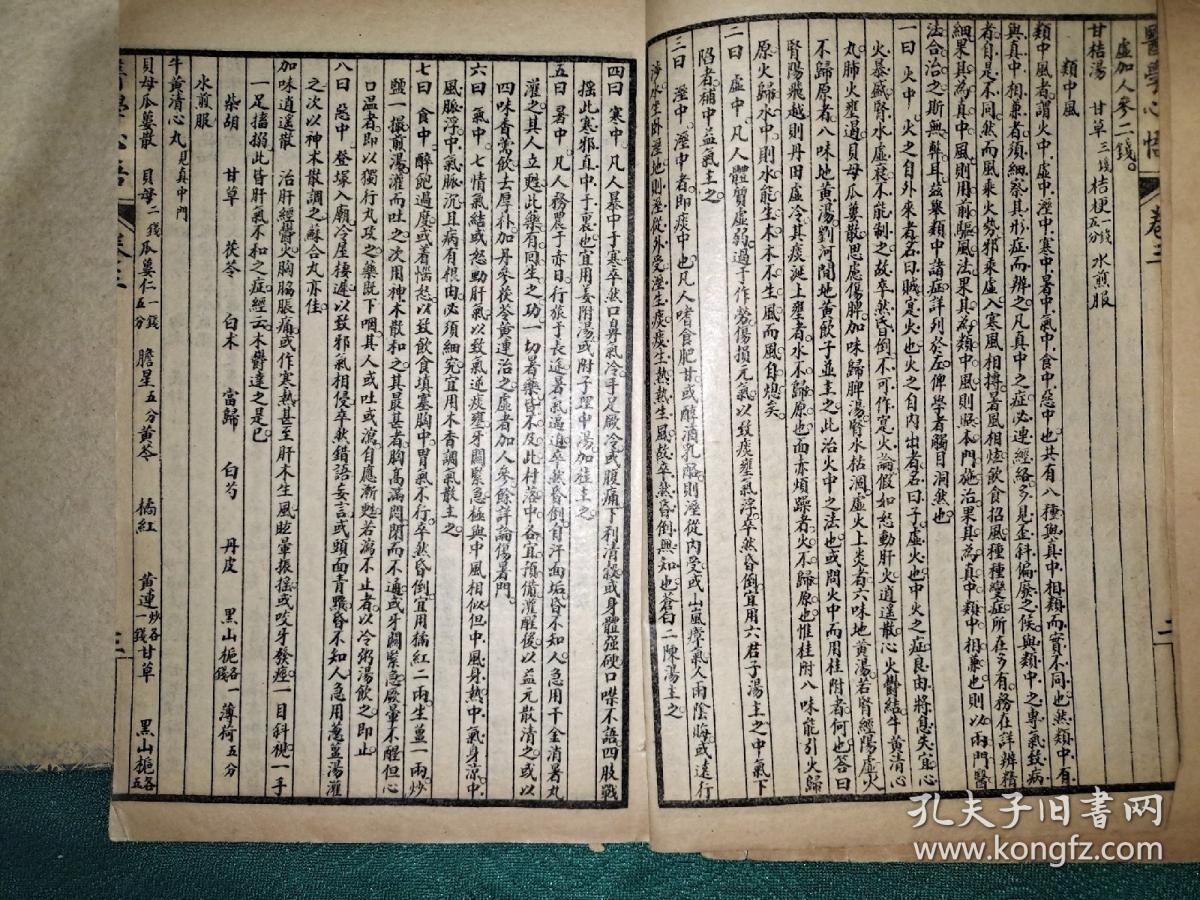 醫學心悟 卷三 二
虛加人參二錢。
甘桔湯 甘草三錢 桔梗一錢五分 水煎服
類中風
類中風者謂火中虛中溼中寒中暑中氣中食中惡中也共有八種與真中相類而實不同也然類中有
與真中相兼者須細察其形症而辨之凡真中之症必連經絡多見歪斜偏廢之候與類中之專氣致病
者自是不同然而風乘火勢邪乘虛入寒風相搏暑風相炫飲食招風種種變症所在多有務在詳辨精
細果其為真中風則用前驅風法果其為類中風則照本門施治果其為真中類中相兼也則以兩門醫
法合治之斯無弊耳茲舉類中諸症詳列於左俾學者觸目洞然也
一曰火中 火之自外來者名曰賊寔火也火之自內出者名曰子虛火也中火之症良由將息失宜心
火暴盛腎水虛衰不能制之故卒然昏倒不可作寔火論假如怒動肝火逍遙散心火鬱結牛黃清心
丸肺火壅遏貝母瓜蔞散思慮傷脾加味歸脾湯腎水枯涸虛火上炎者六味地黃湯若腎經陽虛火
不歸原者八味地黃湯劉河間地黃飲子並主之此治火中之法也或問火中而用桂附者何也答曰
腎陽飛越則丹田虛冷其痰涎上壅者水不歸原也面赤煩躁者火不歸原也惟桂附八味能引火歸
原火歸水中則水能生木木不生風而風自熄矣
二曰虛中凡人體質虛弱過于作勞傷損元氣以致痰壅氣浮卒然昏倒宜用六君子湯主之中氣下
陷者補中益氣主之
三曰溼中溼中者即痰中也凡人嗜食肥甘或醇酒乳酪則溼從內受或山嵐瘴氣久雨陰晦或遠行
涉水坐臥溼地則溼從外受溼生痰痰生熱熱生風故卒然昏倒無知也蒼白二陳湯主之
四曰寒中凡人暴中于寒卒然口鼻氣冷手足厥冷或腹痛下利清穀或身體强硬口噤不語四肢戰
搖此寒邪真中于裏也宜用姜附湯或附子理中湯加桂主之
五曰暑中凡人務農于赤日行旅于長途暑氣逼迫卒然昏倒自汗面垢昏不知人急用千金消暑丸
灌之其人立甦此藥有回生之功一切暑藥皆不及此村落中各宜預備灌醒後以益元散清之或以
四味香薷飲去厚朴加丹參茯苓黃連治之虛者加人參餘詳論傷暑門。
六曰氣中七情氣結或怒動肝氣以致氣逆痰壅牙關緊急極與中風相似但中風身熱中氣身涼中
風脈浮中氣脈沉且病有根由必須細究宜用木香調氣散主之
七曰食中醉飽過度或着惱怒以致飲食填塞胸中胃氣不行卒然昏倒宜用橘紅二兩生薑一兩炒
鹽一撮煎湯灌而吐之次用神朮散和之其最甚者胸高滿悶閉而不通或牙關緊急厥暈不醒但心
口溫者即以獨行丸攻之藥既下咽其人或吐或瀉自應漸甦若瀉不止者以冷粥湯飲之即止
八曰惡中登塚入廟冷屋棲遲以致邪氣相侵卒然錯語妄言或頭面青黯昏不知人急用葱薑湯灌
之次以神朮散調之蘇合丸亦佳
加味逍遙散 治肝經鬱火胸脇脹痛或作寒熱甚至肝木生風眩暈振搖或咬牙發痙一目斜視一手
一足搐搦此皆肝氣不和之症經云木鬱達之是已
柴胡 甘草 茯苓 白朮 當歸 白芍 丹皮 黑山梔各一錢 薄荷五分
水煎服
牛黃清心丸見真中門
貝母瓜蔞散 貝母二錢 瓜蔞仁一錢五分 膽星五分 黃芩 橘紅 黃連炒各一錢 甘草 黑山梔各五
醫學心悟 卷三 三
孔夫子旧书网
www.kongfz.com